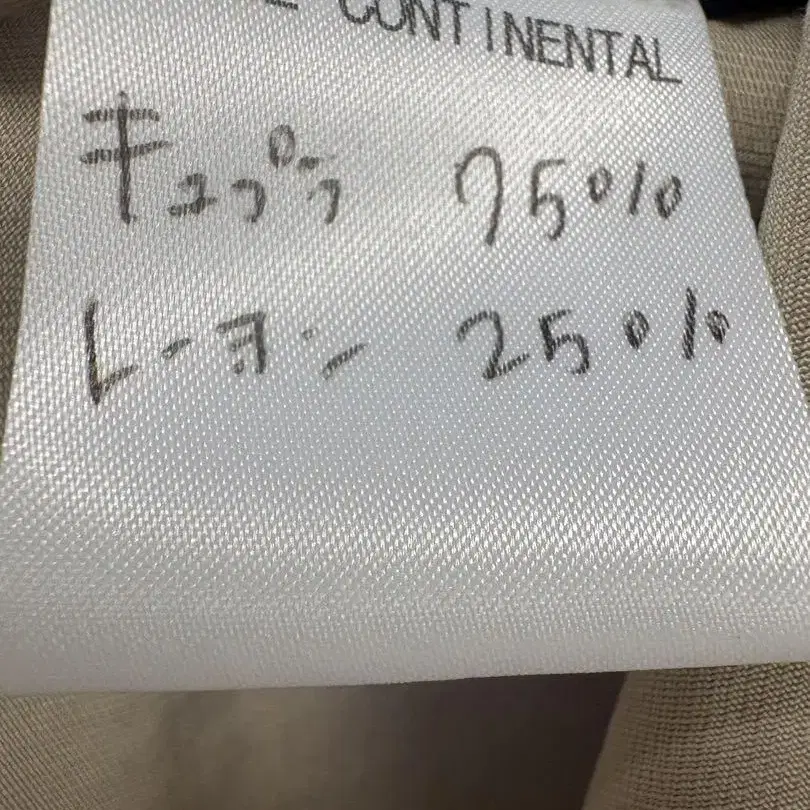 CONTINENTAL
キュプラ 75%
レーヨン 25%